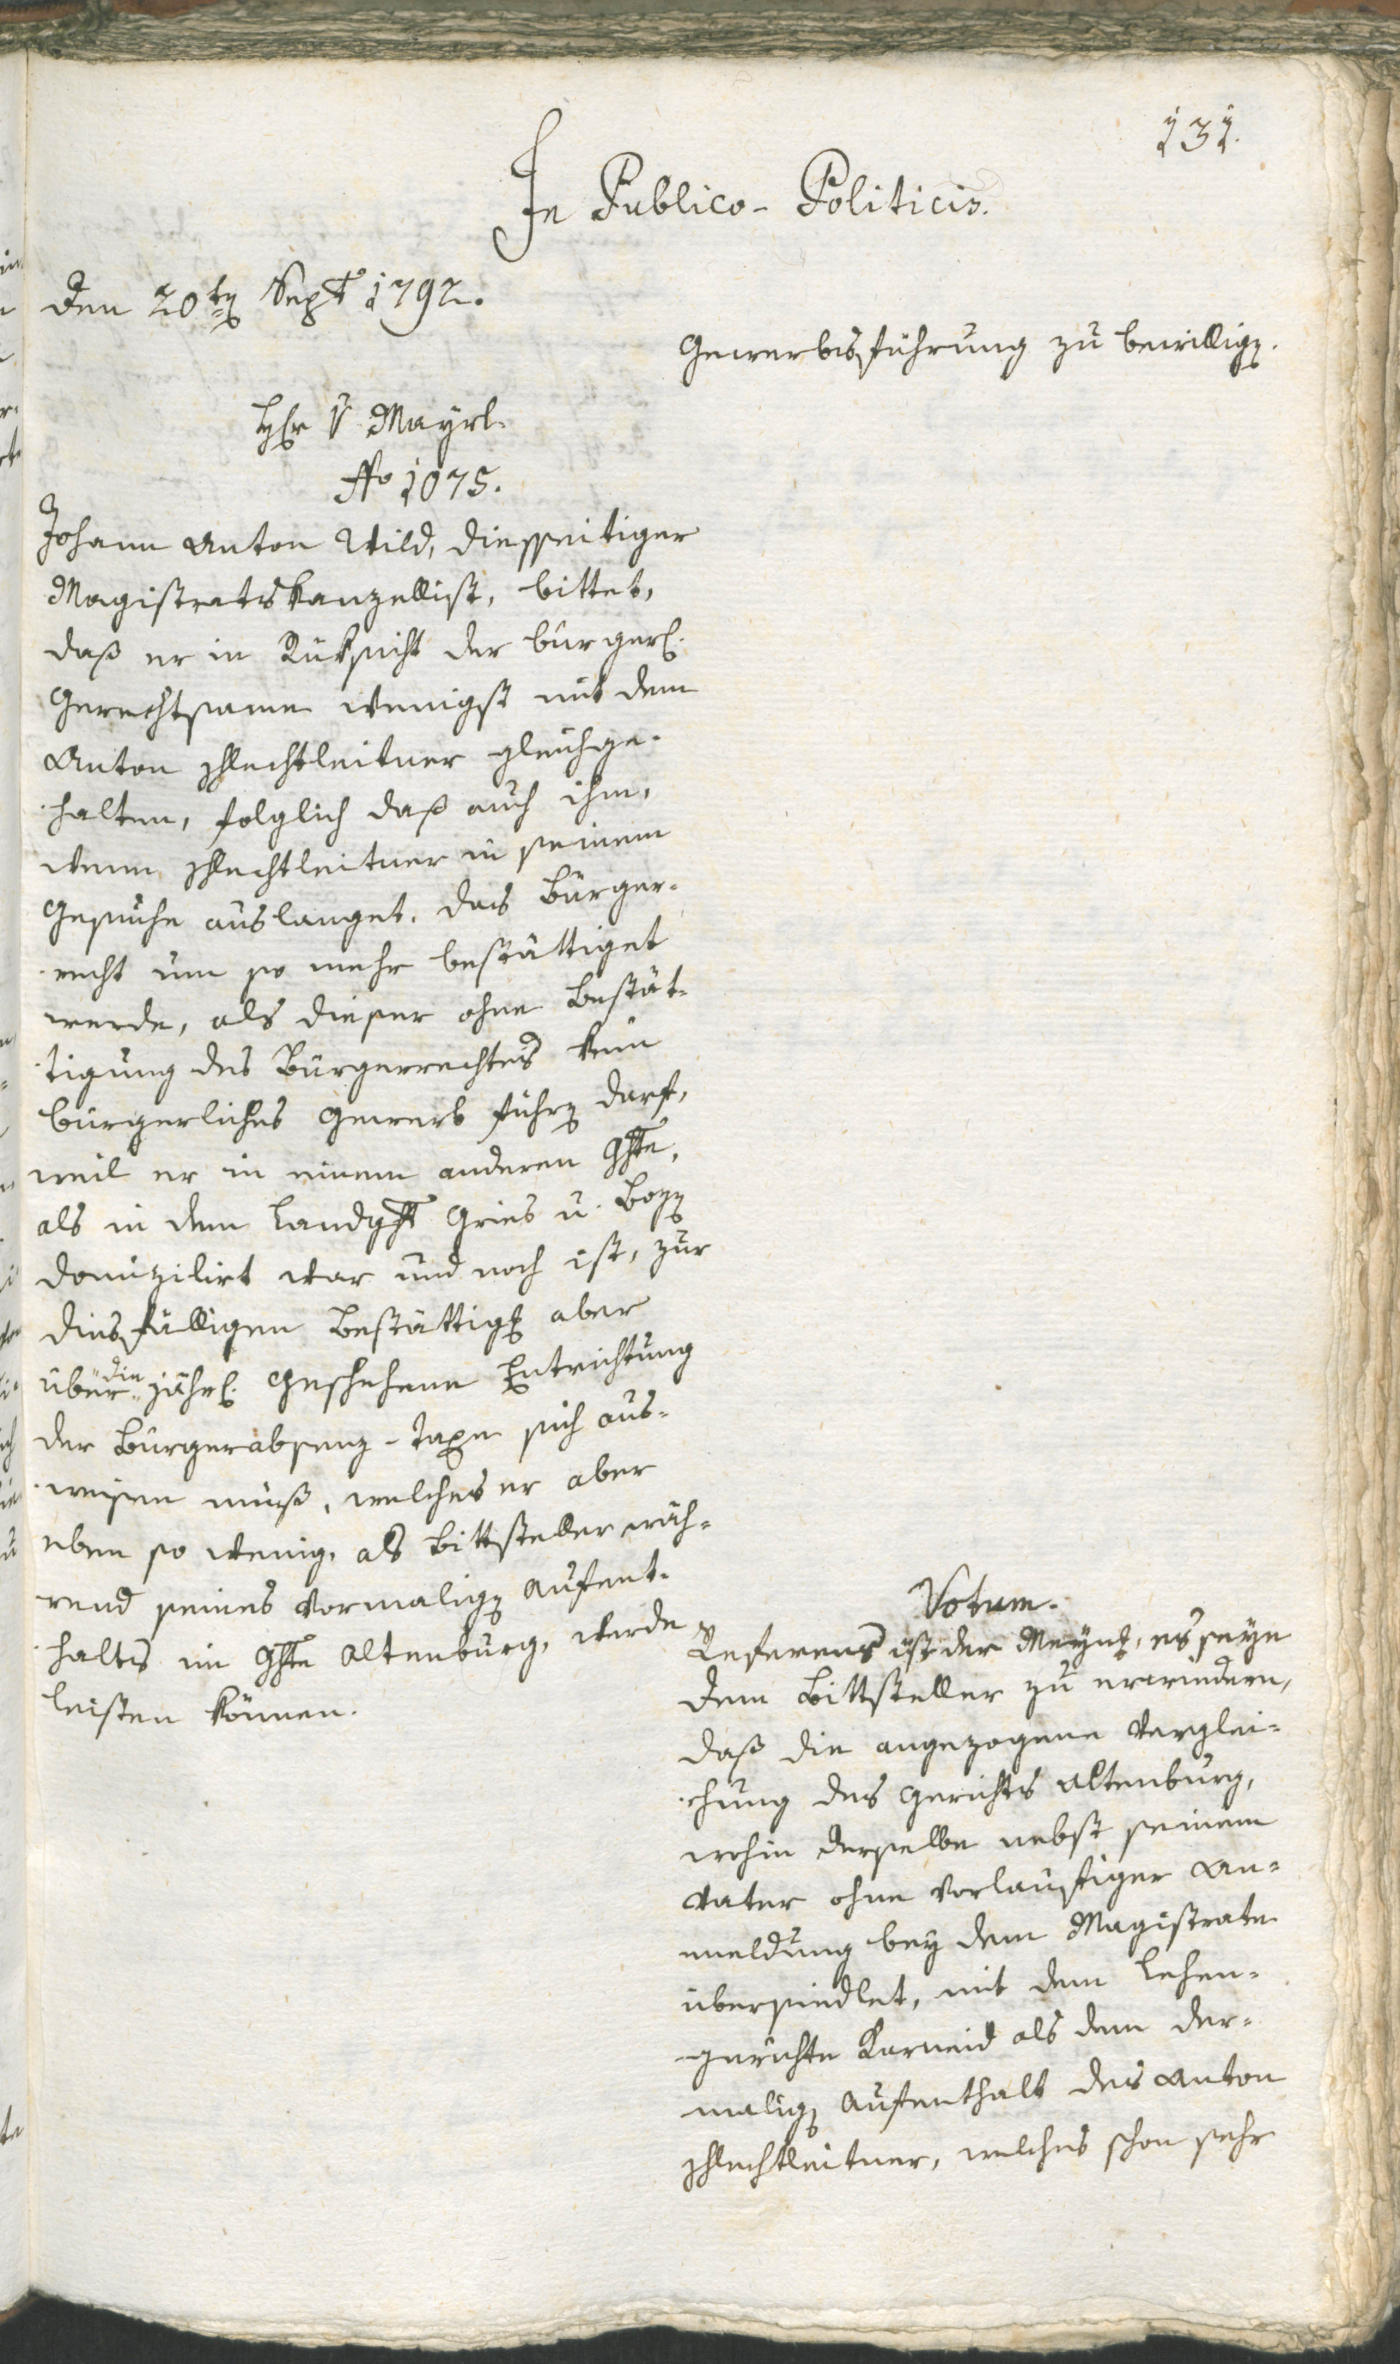 131.
In Publico-Politicis.
Den 20ten Sept 1792.
Gewerbsführung zu bewillig.
Hr v Mayrl.
No 1075.
Johann Anton Wild, diesseitiger
Magistratskanzellist, bittet,
daß er in Rüksicht der bürgerl.
Gerechtsame wenigst mit dem
Anton Schlechtleitner gleichge-
halten, folglich daß auch ihm,
wenn Schlechtleitner in seinem
Gesuche auslanget, das Bürger-
recht um so mehr bestättiget
werde, als dieser ohne Bestät-
tigung des Bürgerrechtes kein
bürgerliches Gewerb führen darf,
weil er in einem anderen Ghte,
als in dem Landght Gries u. Bozen
domizilirt war und noch ist, zur
diesfälligen Bestättigg aber
über die jährl. geschehene Entrichtung
der Bürgerabsenz-Taxen sich aus-
weisen muß, welches er aber
eben so wenig, als Bittsteller wäh-
rend seines vormaligen Aufent-
halts im Ghte Altenburg, werde
leisten können.
Votum.
Referens ist der Meyng, es seye
dem Bittsteller zu erwiedern,
daß die angezogene Verglei-
chung des Gerichts Altenburg,
wohin derselbe nebst seinem
Vater ohne vorläufiger An-
meldung bey dem Magistrate
übersiedlet, mit dem Lehen-
gerichte Karneid als dem der-
maligen Aufenthalt des Anton
Schlechtleitner, welches schon sehr